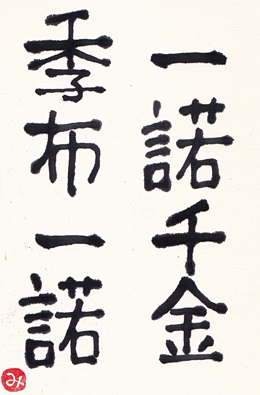 一諾千金
季布一諾
み